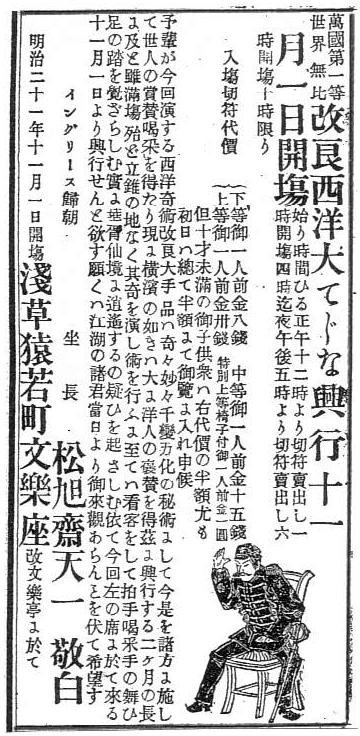 萬國第一等
世界無比
改良西洋大てじな興行十一
月一日開塲
始り時間ひる正午十二時より切符賣出し一
時開塲四時迄夜午後五時より切符賣出し六
時開塲十時限り
入塲切符代價
下等御一人前金八錢 中等御一人前金十五錢
上等御一人前金卅錢 特別上等椅子付御一人前金一圓
但十才未滿の御子供衆ハ右代價の半額尤も
初日ハ總て半額にて御覽に入れ申候
予輩が今回演する西洋奇術改良大手品ハ奇々妙々千變万化の秘術にして今是を諸方に施し
て世人の賞賛喝采を得たり現に横濱の如きハ大に洋人の褒賛を得茲に興行する二ケ月の長
きに及と雖滿塲殆と立錐の地なく其奇を演し術を行ふに至てハ看客をして拍手喝釆手の舞ひ
足の踏を覺ざらしむ實に華胥仙境に逍遙するの疑ひを起さしむ依て今回左の席に於て來る
十一月一日より興行せんと欲す願くハ江湖の諸君當日より御來觀あらんことを伏て希望す
イングリース歸朝 坐長 松旭齋天一 敬白
明治二十一年十一月一日開塲 淺草猿若町文樂座 改文樂亭に於て